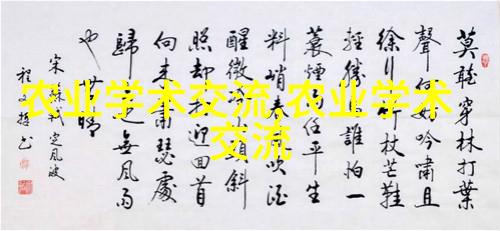 农业学术交流,农业学术交流
莫聽穿林打葉
聲何妨吟嘯且
徐行竹杖芒鞋
輕勝馬誰怕一
蓑煙雨任平生
料峭春風吹酒
醒微冷山頭斜
照却相迎回首
向來蕭瑟處
歸去也無風雨
也無晴
宋蘇軾定風波